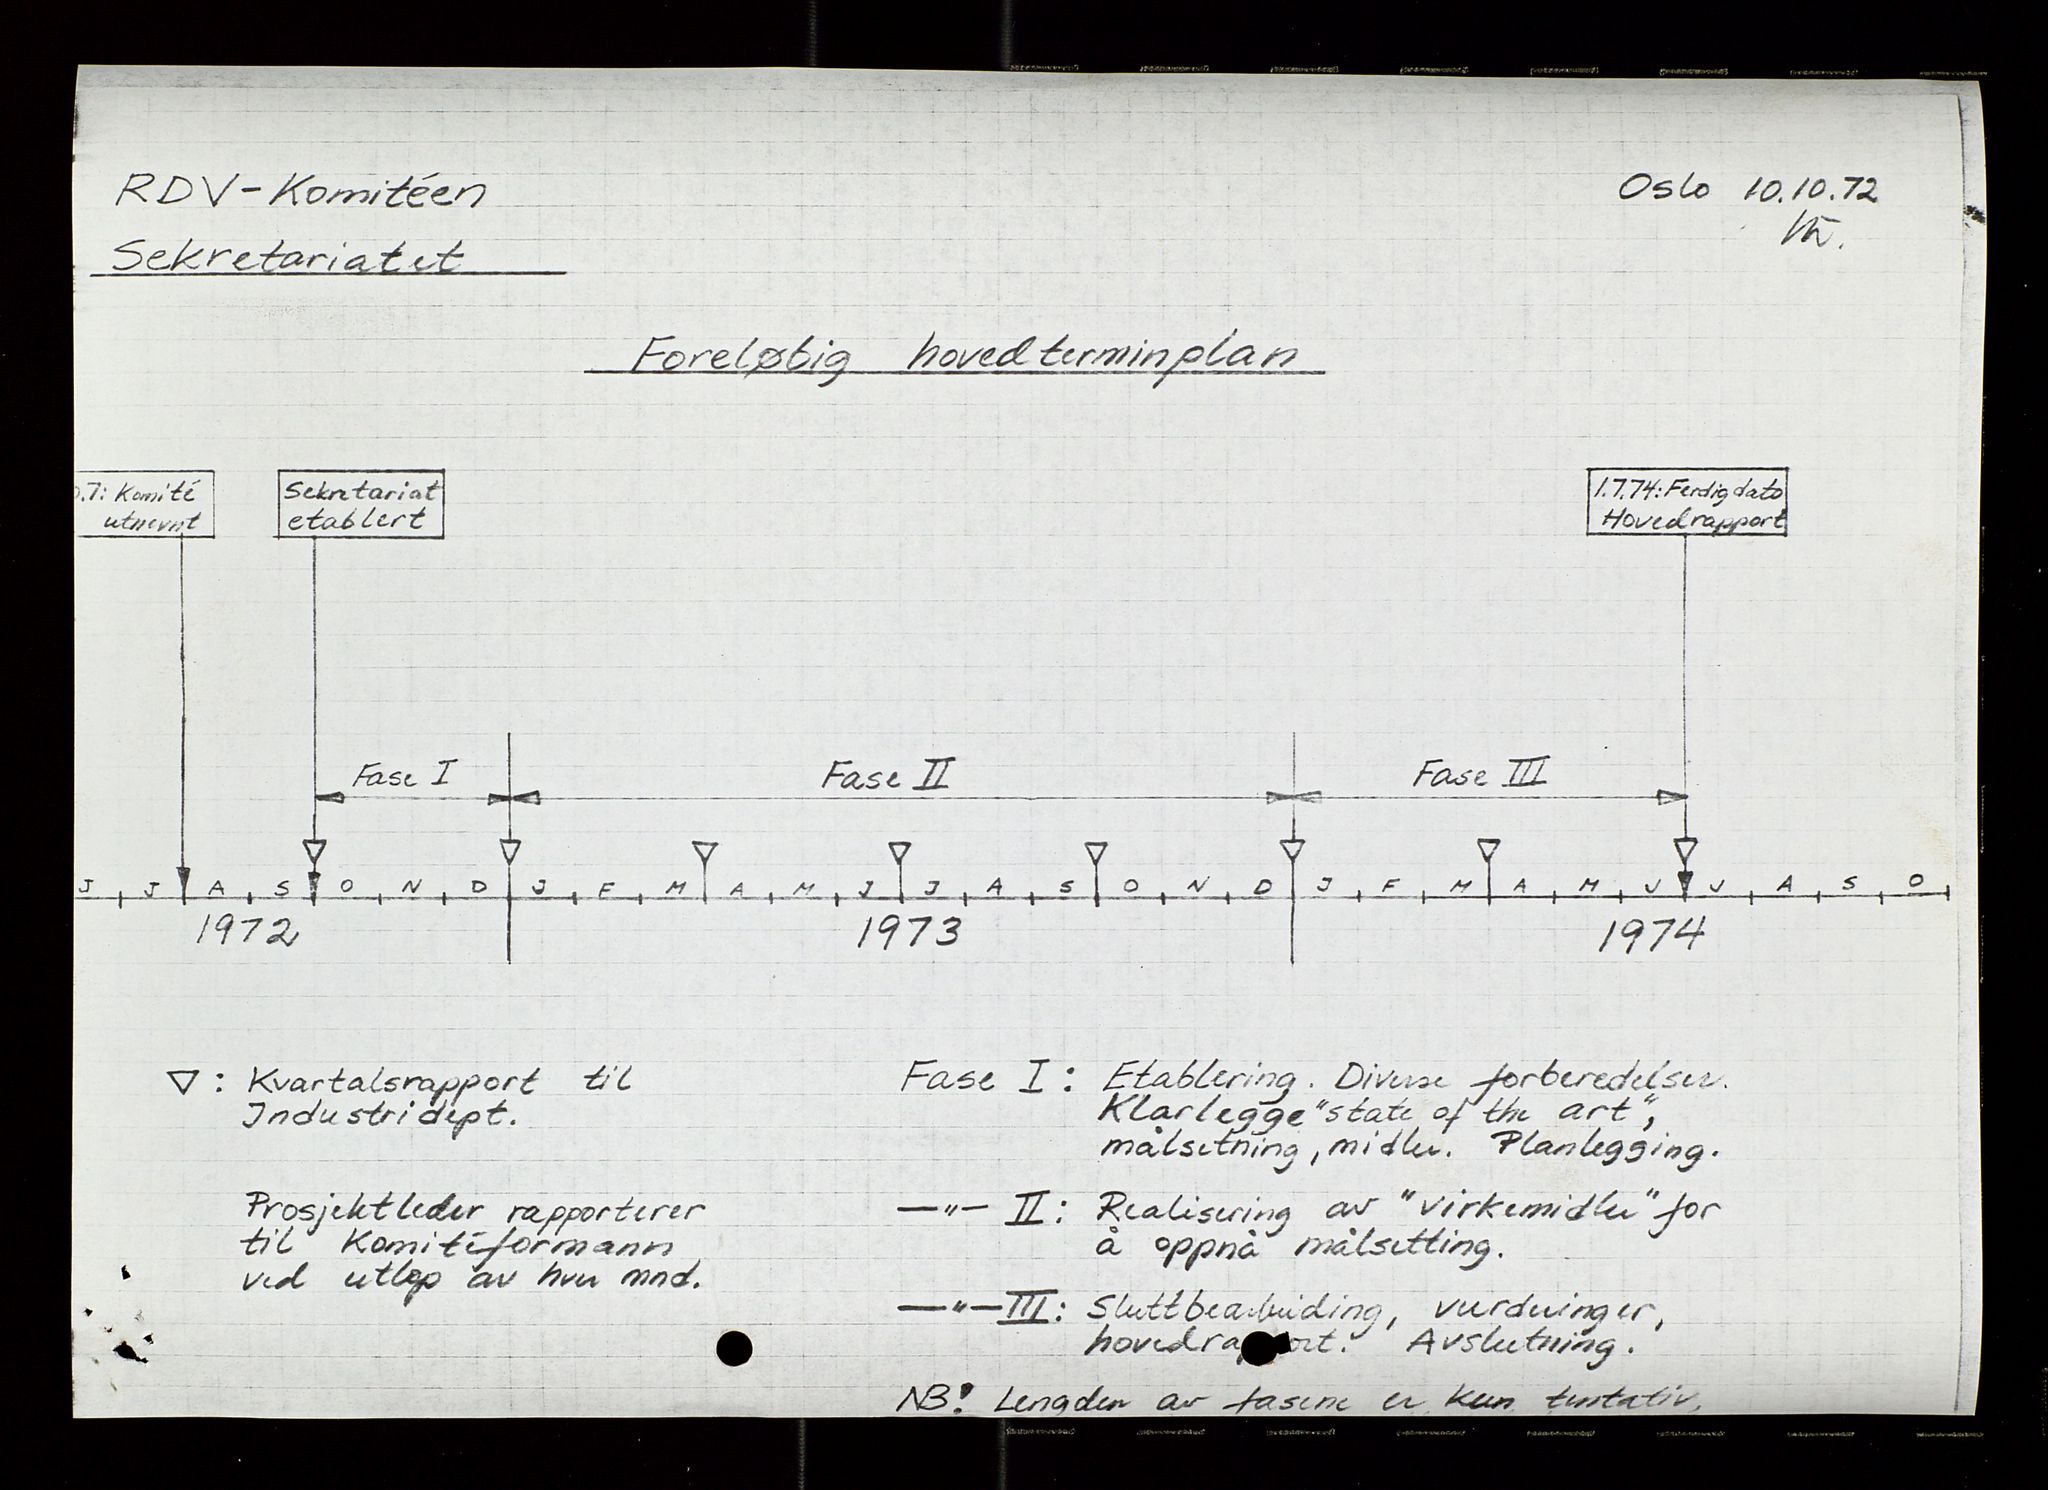 RDV-Komitéen
Oslo 10.10.72
Sekretariatet
Foreløbig hovedterminplan
.7: Komité
utnevnt
Sekretariat
etablert
1.7.74: Ferdigdato
Hovedrapport
Fase I
Fase II
Fase III
J J A S O N D J F M A M J J A S O N D J F M A M J J A S O
1972
1973
1974
▽: Kvartalsrapport til
Industridept.
Prosjektleder rapporterer
til Komitéformann
ved utløp av hver mnd.
Fase I: Etablering. Diverse forberedelser.
Klarlegge "state of the art",
målsetning, midler. Planlegging.
—"— II: Realisering av "virkemidler" for
å oppnå målsetting.
—"— III: Sluttbearbeiding, vurderinger,
hovedrapport. Avslutning.
NB! Lengden av fasene er kun tentativ.